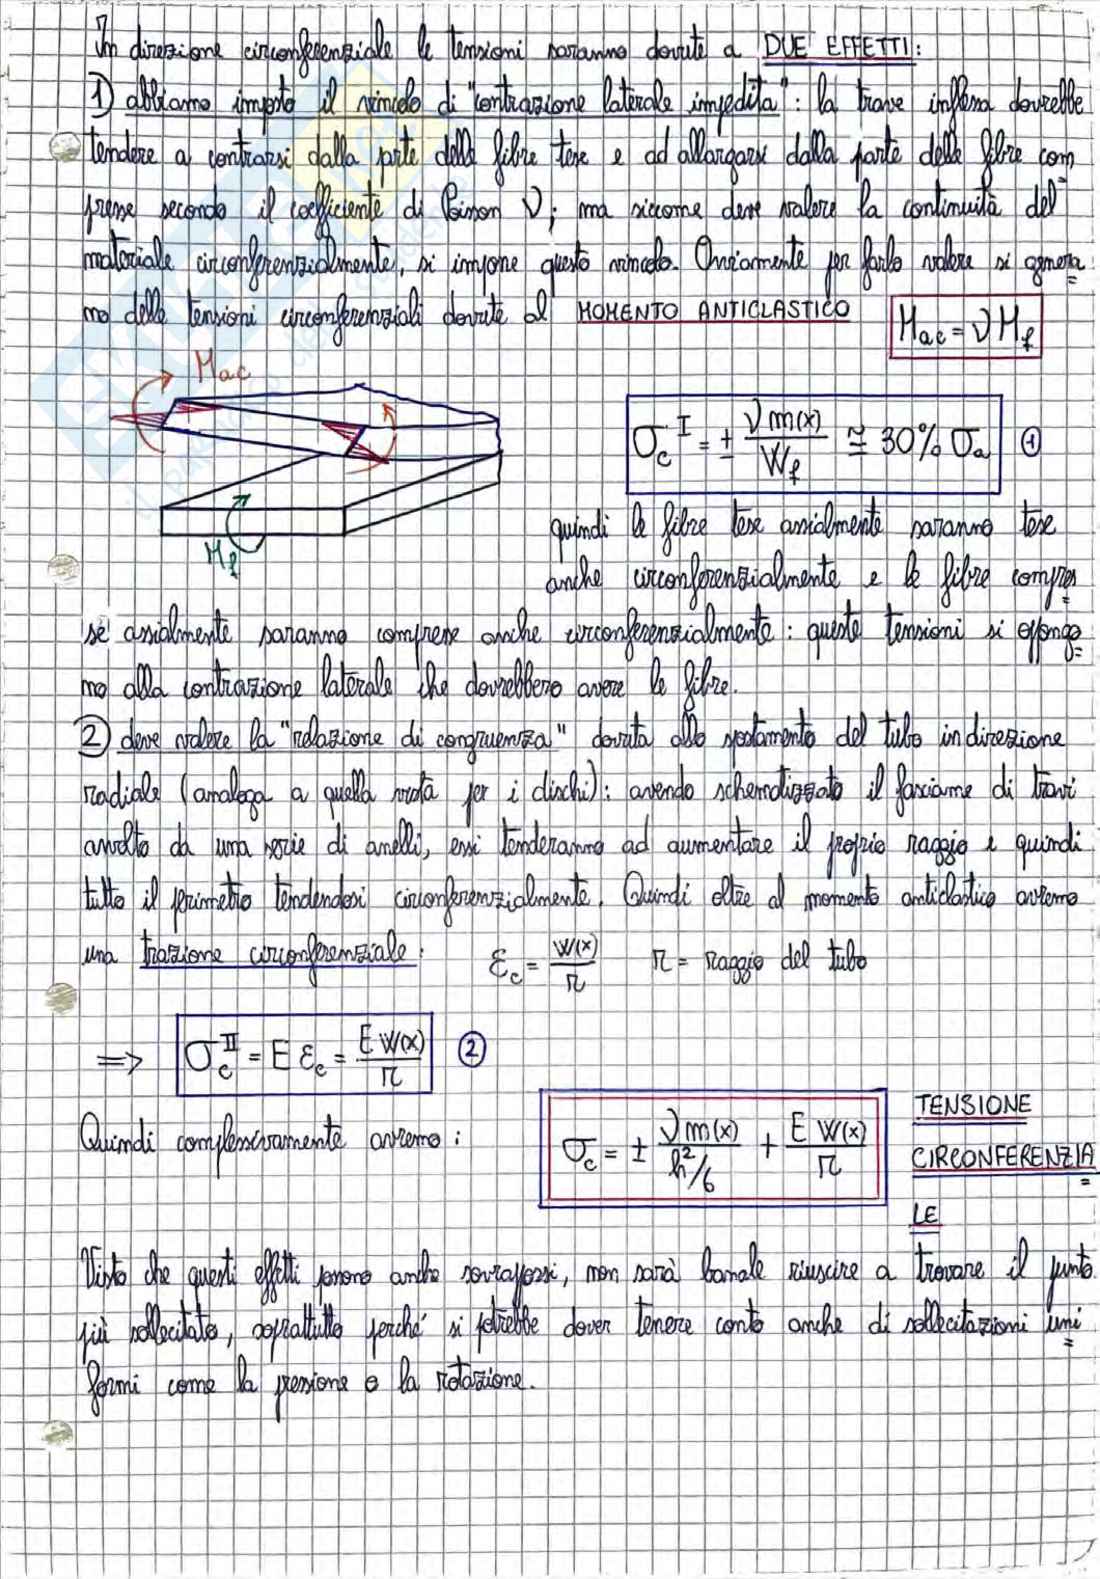 In direzione circonferenziale le tensioni saranno dovute a DUE EFFETTI:
1) abbiamo imposto il vincolo di "contrazione laterale impedita": la trave inflessa dovrebbe
tendere a contrarsi dalla parte delle fibre tese e ad allargarsi dalla parte delle fibre com
presse secondo il coefficiente di Poisson ν; ma siccome deve valere la continuità del
materiale circonferenzialmente, si impone questo vincolo. Ovviamente per farlo valere si genera=
no delle tensioni circonferenziali dovute al MOMENTO ANTICLASTICO
Mac = ν Mf
Mac
σc^I = ± ν m(x)/Wf ≅ 30% σa ①
quindi le fibre tese assialmente saranno tese
Mf
anche circonferenzialmente e le fibre compres=
se assialmente saranno compresse anche circonferenzialmente: queste tensioni si oppongo=
no alla contrazione laterale che dovrebbero avere le fibre.
② deve valere la "relazione di congruenza" dovuta allo spostamento del tubo in direzione
radiale (analoga a quella vista per i dischi): avendo schematizzato il fasciame di travi
avvolto da una serie di anelli, essi tenderanno ad aumentare il proprio raggio e quindi
tutto il perimetro tendendosi circonferenzialmente. Quindi oltre al momento anticlastico avremo
una trazione circonferenziale: εc = w(x)/r r = raggio del tubo
⇒ σc^II = E εc = E w(x)/r ②
Quindi complessivamente avremo: σc = ± ν m(x)/(h²/6) + E w(x)/r
TENSIONE
CIRCONFERENZIA=
LE
Visto che questi effetti possono anche sovrapporsi, non sarà banale riuscire a trovare il punto
più sollecitato, soprattutto perché si potrebbe dover tenere conto anche di sollecitazioni uni=
formi come la pressione o la rotazione.